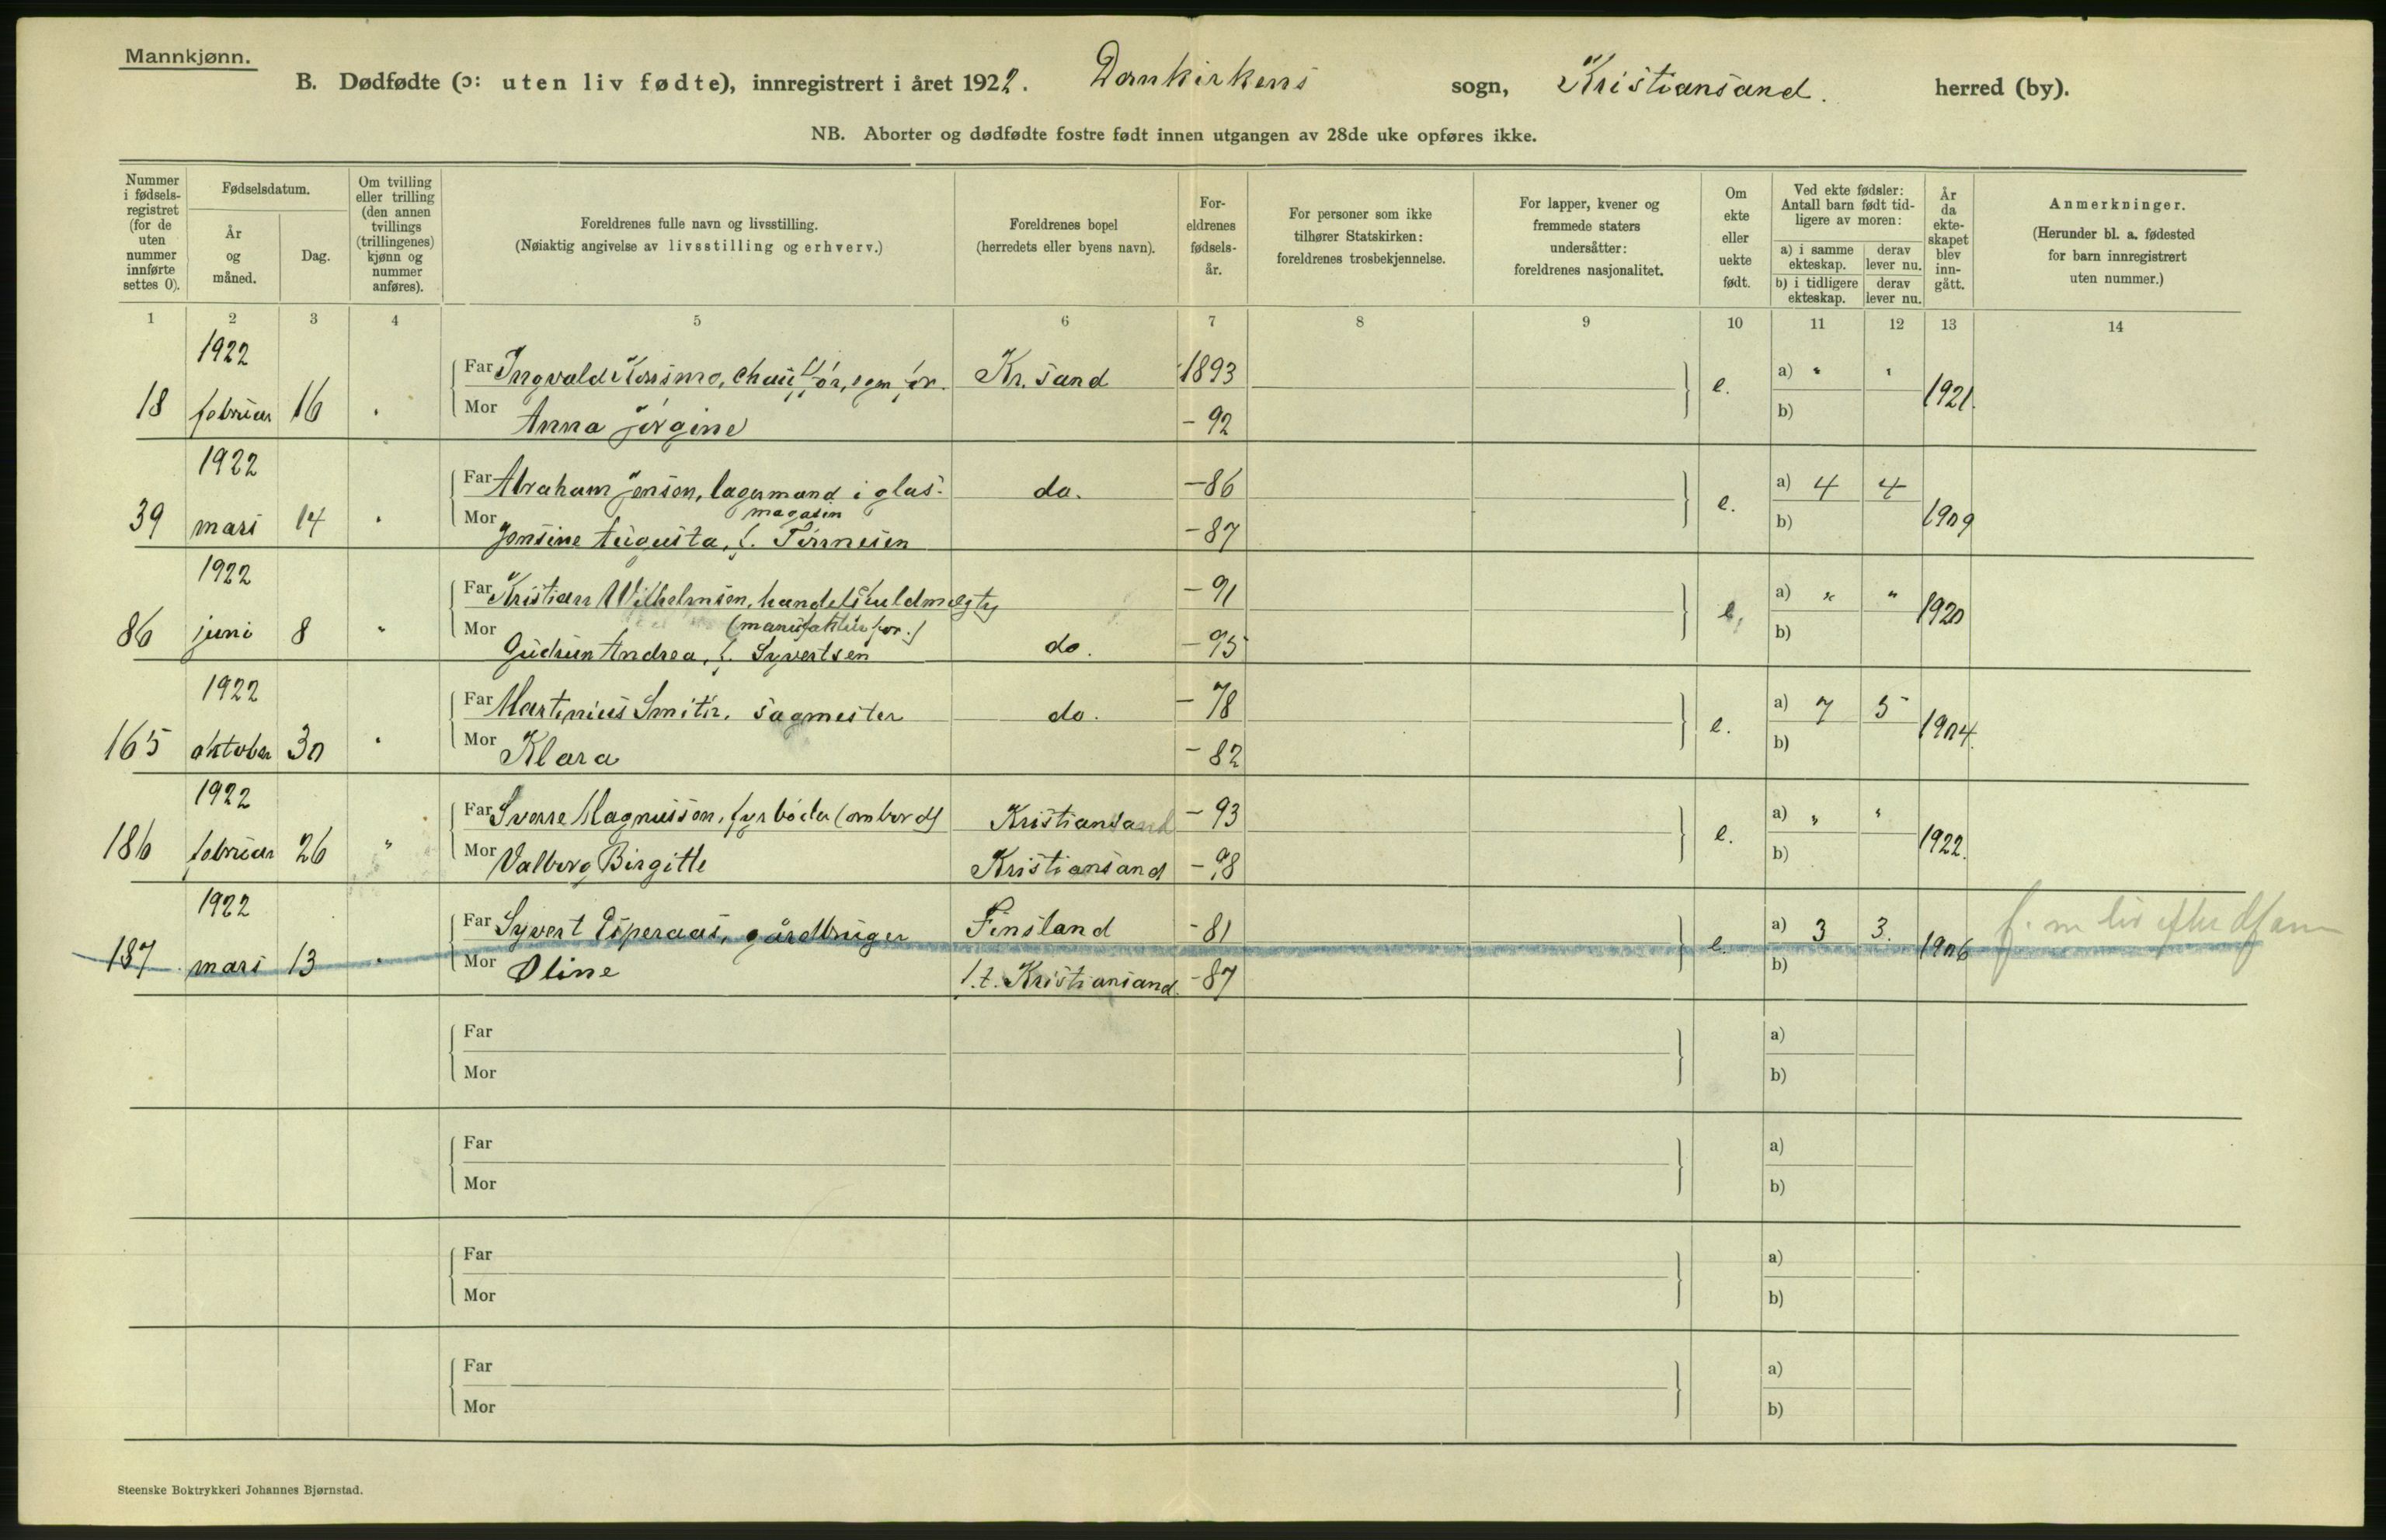 Mannkjønn.
B. Dødfødte (ɔ: uten liv fødte), innregistrert i året 1922. Domkirkens sogn, Kristiansand. herred (by).
NB. Aborter og dødfødte fostre født innen utgangen av 28de uke opføres ikke.
Nummer i fødselsregistret (for de uten nummer innførte settes 0).
Fødselsdatum.
År og måned.
Dag.
Om tvilling eller trilling (den annen tvillings (trillingenes) kjønn og nummer anføres).
Foreldrenes fulle navn og livsstilling.
(Nøiaktig angivelse av livsstilling og erhverv.)
Foreldrenes bopel
(herredets eller byens navn).
Foreldrenes fødselsår.
For personer som ikke tilhører Statskirken: foreldrenes trosbekjennelse.
For lapper, kvener og fremmede staters undersåtter: foreldrenes nasjonalitet.
Om ekte eller uekte født.
Ved ekte fødsler: Antall barn født tidligere av moren:
a) i samme ekteskap.
derav lever nu.
b) i tidligere ekteskap.
derav lever nu.
År da ekteskapet blev inngått.
Anmerkninger.
(Herunder bl. a. fødested for barn innregistrert uten nummer.)
1 2 3 4 5 6 7 8 9 10 11 12 13 14
1922
Far Ingvald chauffør, egen Kr. sand 1893 a) " "
18 februar 16 " e. 1921.
Mor Anna Jørgine - 92 b)
1922
Far Abraham Jensen, lagermand i glas- do. - 86 a) 4 4
magasin
39 mars 14 " e. 1909
Mor Jensine Augusta, f. Tønnesen - 87 b)
1922
Far Kristian Wilhelmsen, handelsfuldmægtig - 91 a) " "
(manufaktur for.)
86 juni 8 " e. 1920
Mor Gudrun Andrea, f. Syvertsen do. - 95 b)
1922
Far Martinius Smith, sagmester do. - 78 a) 7 5
165 oktober 30 " e. 1904.
Mor Klara - 82 b)
1922
Far Sverre Magnussen, fyrbøder (ombord) Kristiansand - 93 a) " "
186 februar 26 " e. 1922.
Mor Valborg Birgitte Kristiansand - 98 b)
1922
Far Syvert Esperaas, gårdbruger Finsland - 81 a) 3 3.
187 mars 13 " e. 1906 f. m liv efter
Mor Oline f.t. Kristiansand. - 87 b)
Far a)
Mor b)
Far a)
Mor b)
Far a)
Mor b)
Far a)
Mor b)
Steenske Boktrykkeri Johannes Bjørnstad.